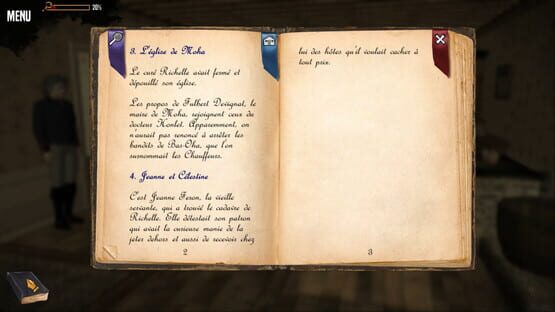 MENU
20%
3. L'église de Moha
Le curé Richelle avait fermé et
dépouillé son église.
Les propos de Fulbert Devignat, le
maire de Moha, rejoignent ceux du
docteur Hontet. Apparemment, on
n'aurait pas renoncé à arrêter les
bandits de Bas-Oha, que l'on
surnommait les Chauffeurs.
4. Jeanne et Célestine
C'est Jeanne Feron, la vieille
servante, qui a trouvé le cadavre de
Richelle. Elle détestait son patron
qui avait la curieuse manie de la
jeter dehors et aussi de recevoir chez
2
lui des hôtes qu'il voulait cacher à
tout prix.
3